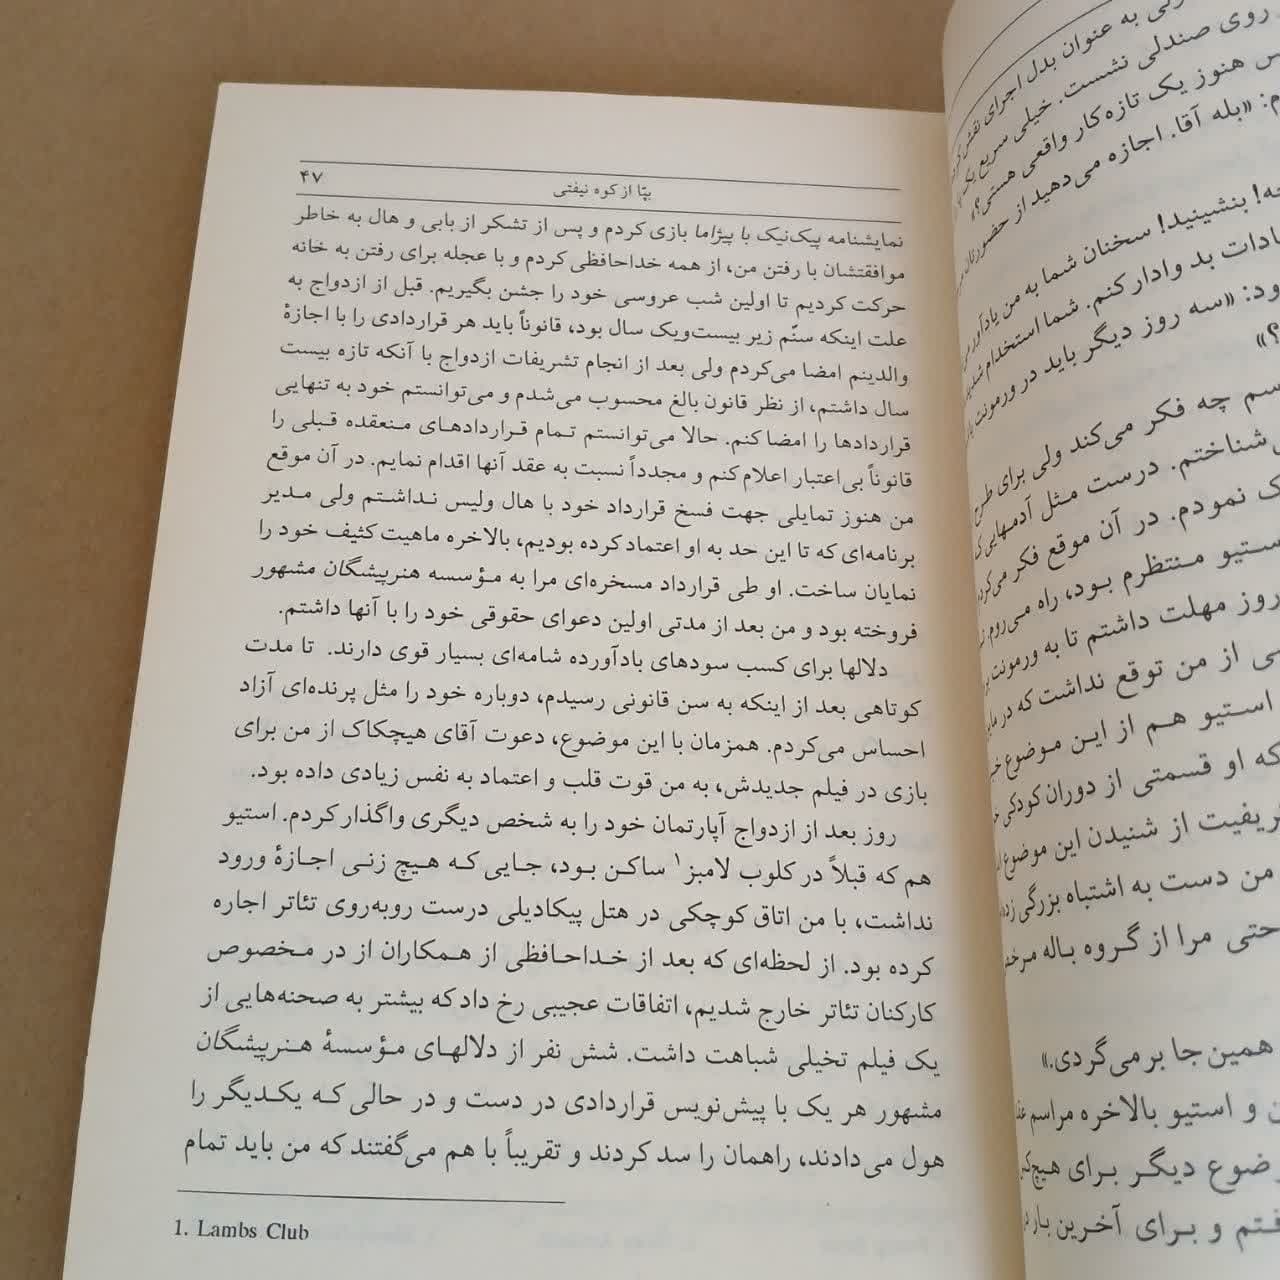 بپا از کوه نیفتی
۴۷
نمایشنامه پیک‌نیک با پیژاما بازی کردم و پس از تشکر از بابی و هال به خاطر
موافقتشان با رفتن من، از همه خداحافظی کردم و با عجله برای رفتن به خانه
حرکت کردیم تا اولین شب عروسی خود را جشن بگیریم. قبل از ازدواج به
علت اینکه سنّم زیر بیست‌ویک سال بود، قانوناً باید هر قراردادی را با اجازهٔ
والدینم امضا می‌کردم ولی بعد از انجام تشریفات ازدواج با آنکه تازه بیست
سال داشتم، از نظر قانون بالغ محسوب می‌شدم و می‌توانستم خود به تنهایی
قراردادها را امضا کنم. حالا می‌توانستم تمام قراردادهای منعقده قبلی را
قانوناً بی‌اعتبار اعلام کنم و مجدداً نسبت به عقد آنها اقدام نمایم. در آن موقع
من هنوز تمایلی جهت فسخ قرارداد خود با هال ولیس نداشتم ولی مدیر
برنامه‌ای که تا این حد به او اعتماد کرده بودیم، بالاخره ماهیت کثیف خود را
نمایان ساخت. او طی قرارداد مسخره‌ای مرا به مؤسسه هنرپیشگان مشهور
فروخته بود و من بعد از مدتی اولین دعوای حقوقی خود را با آنها داشتم.
دلالها برای کسب سودهای بادآورده شامه‌ای بسیار قوی دارند. تا مدت
کوتاهی بعد از اینکه به سن قانونی رسیدم، دوباره خود را مثل پرنده‌ای آزاد
احساس می‌کردم. همزمان با این موضوع، دعوت آقای هیچکاک از من برای
بازی در فیلم جدیدش، به من قوت قلب و اعتماد به نفس زیادی داده بود.
روز بعد از ازدواج آپارتمان خود را به شخص دیگری واگذار کردم. استیو
هم که قبلاً در کلوب لامبز۱ ساکن بود، جایی که هیچ زنی اجازهٔ ورود
نداشت، با من اتاق کوچکی در هتل پیکادیلی درست روبه‌روی تئاتر اجاره
کرده بود. از لحظه‌ای که بعد از خداحافظی از همکاران از در مخصوص
کارکنان تئاتر خارج شدیم، اتفاقات عجیبی رخ داد که بیشتر به صحنه‌هایی از
یک فیلم تخیلی شباهت داشت. شش نفر از دلالهای مؤسسهٔ هنرپیشگان
مشهور هر یک با پیش‌نویس قراردادی در دست و در حالی که یکدیگر را
هول می‌دادند، راهمان را سد کردند و تقریباً با هم می‌گفتند که من باید تمام
1. Lambs Club
به عنوان بدل اجرای نقش
روی صندلی نشست. خیلی سریع یک
هنوز یک تازه‌کار واقعی هستی؟»
«بله آقا. اجازه می‌دهید از حضورتان
بنشینید! سخنان شما به من یادآور
بد وادار کنم. شما استخدام شدید
«سه روز دیگر باید در ورمونت
؟»
چه فکر می‌کند ولی برای طرح
شناختم. درست مثل آدمهایی
نمودم. در آن موقع فکر
منتظرم بود، راه می‌روم
روز مهلت داشتم تا به ورمونت
از من توقع نداشت که در
استیو هم از این موضوع
که او قسمتی از دوران کودکی
از شنیدن این موضوع
من دست به اشتباه بزرگی
حتی مرا از گروه باله
همین جا برمی‌گردی.»
و استیو بالاخره مراسم
دیگر برای
و برای آخرین بار